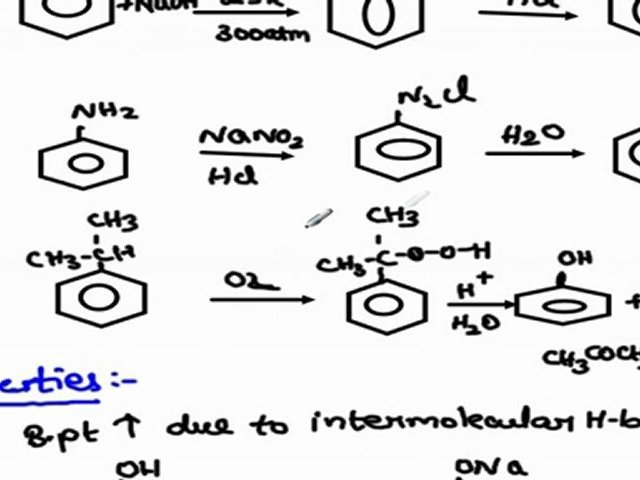 +NaOH
300atm
NH2 NaNO2 HCl N2Cl H2O
CH3 CH3
CH3-CH O2 CH3-C-O-O-H H+ H2O OH +
CH3COCH
erties :-
B.pt ↑ due to intermolecular H-b
OH ONa